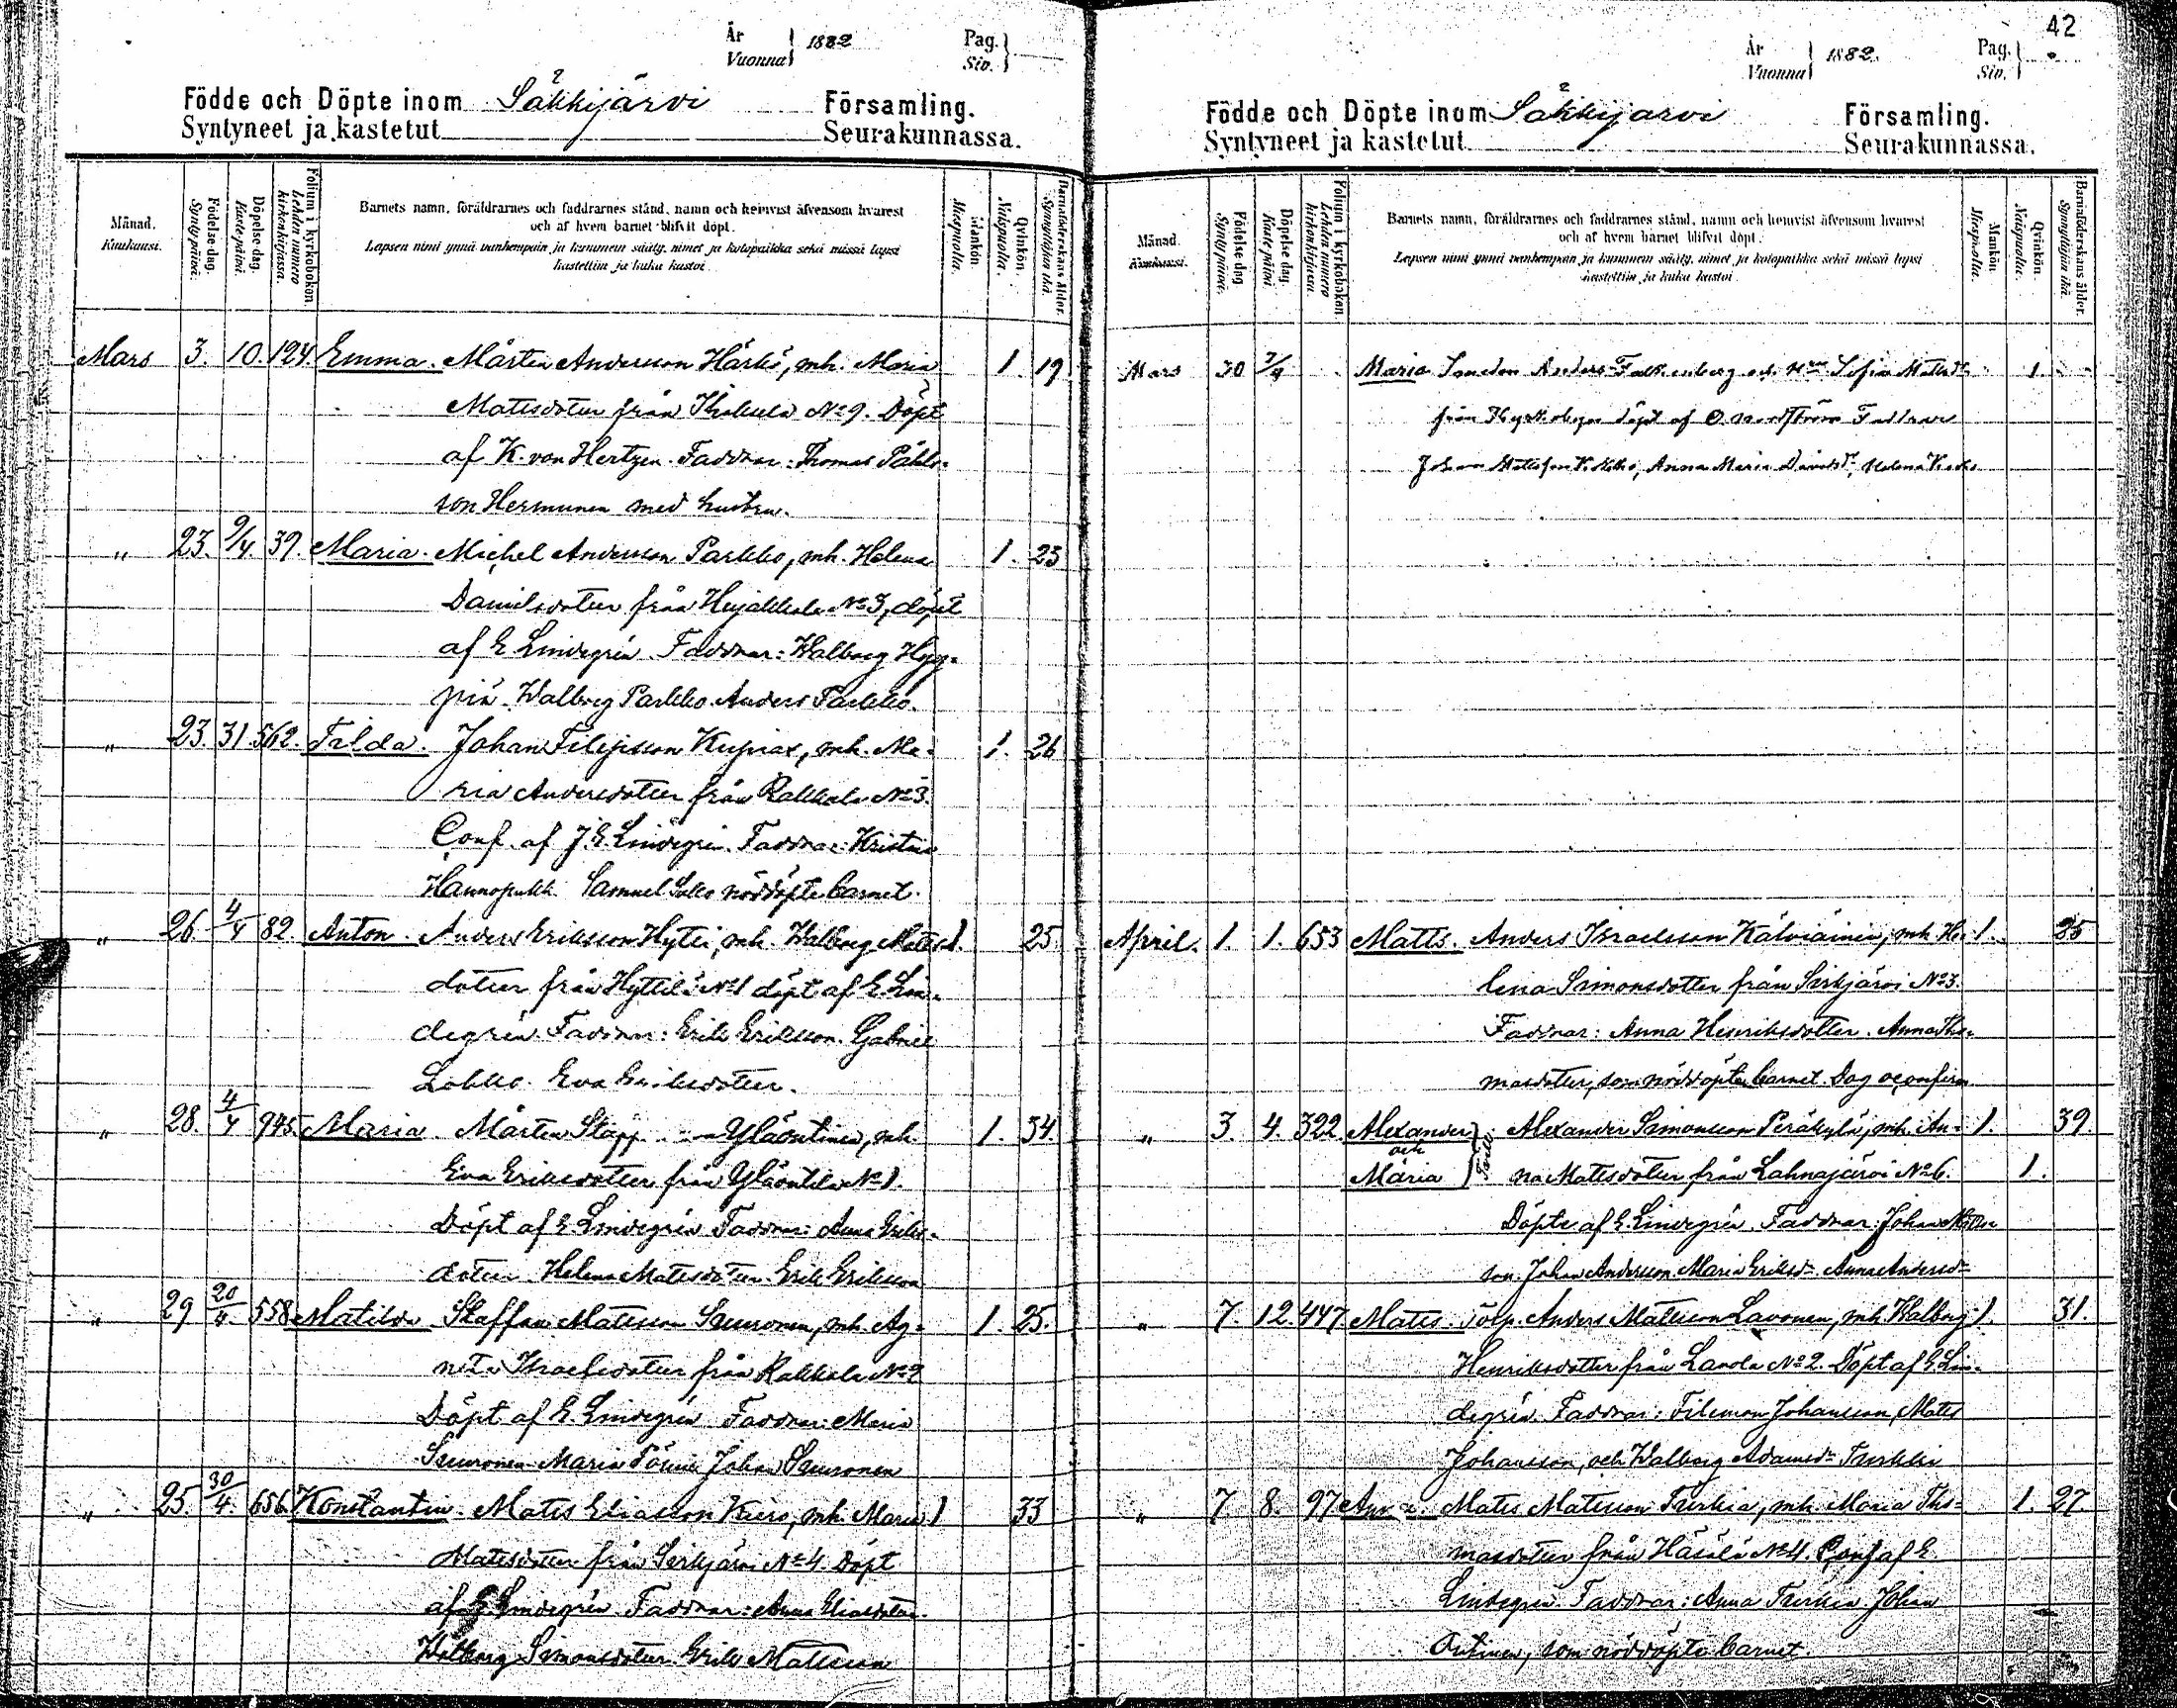 År
Vuonna 1882 Pag.
Siv.
Födde och Döpte inom Säkkijärvi Församling.
Syntyneet ja kastetut Seurakunnassa.
Månad.
Kuukausi.
Födelse dag.
Syntypäivä.
Döpelse dag.
Kastepäivä.
Folium i kyrkoboken.
Lehden numero
kirkonkirjassa.
Barnets namn, föräldrarnes och faddrarnes stånd, namn och hemvist äfvensom hvarest
och af hvem barnet blifvit döpt.
Lapsen nimi ynnä vanhempain ja kummein sääty, nimet ja kotopaikka sekä missä lapsi
kastettiin ja kuka kastoi.
Mankön
Miespuolia.
Qvinkön.
Naispuolia.
Barnaföderskans ålder.
Synnyttäjän ikä.
Mars 3. 10. 124. Emma. Mårten Andersson Härkö, mh. Maria 1 19
Mattsdotter från Ihakula No 9. Döpt
af K. von Hertzen. Faddrar: Thomas Påhls-
son Hermunen med hustru.
" 23. 9/4. 39. Maria. Michel Andersson Parkko, mh. Helena 1. 23
Danielsdotter från Hujakkala No 3, döpt
af E Lindegrén. Faddrar: Walborg Hyy-
piä. Walborg Parkko. Anders Parkko.
" 23. 31. 562. Tilda. Johan Filipsson Kupiax, mh. Ma- 1. 26
ria Andersdotter från Rakkala No 3.
Conf. af J. E. Lindegrén. Faddrar: Kristina
Hannopukk Samuel nöddöpte barnet.
" 26. 4/4 82. Anton. Anders Eriksson Hyteä, mh. Walborg Matts- 1. 25
dotter från Hyttilä No 1 döpt af E. Lin-
degrén. Faddrar: Erik Eriksson. Gabriel
Lohko. Eva Eriksdotter.
" 28. 4/4 945. Maria. Mårten Yläöutinen, mh. 1. 34.
Eva Eriksdotter från Yläöutila No 1.
Döpt af E. Lindegrén Faddrar: Anna Eriks-
dotter. Helena Mattsdotter. Erik Eriksson
" 29 20/4. 558 Matilda Staffan Mattsson Suuronen, mh. Ag- 1. 25.
neta Israelsdotter från Rakkala No 2
Döpt af E. Lindegrén Faddrar: Maria
Suuronen Maria Johan Suuronen
" 25. 30/4. 656. Konstantin. Matts Eliasson Kiero, mh. Maria 1 33
Mattsdotter från Sirkjärvi No 4. Döpt
af E. Lindegrén Faddrar: Anna Eliasdotter.
Walborg Simonsdotter. Erik Mattsson
42
År
Vuonna 1882. Pag.
Siv.
Födde och Döpte inom Säkkijärvi Församling.
Syntyneet ja kastetut Seurakunnassa.
Månad.
Kuukausi.
Födelse dag
Syntypäivä.
Döpelse dag.
Kastepäivä.
Folium i kyrkoboken.
Lehden numero
kirkonkirjassa.
Barnets namn, föräldrarnes och faddrarnes stånd, namn och hemvist äfvensom hvarest
och af hvem barnet blifvit döpt.
Lapsen nimi ynnä vanhempain ja kummein sääty, nimet ja kotopaikka sekä missä lapsi
kastettiin ja kuka kastoi.
Mankön
Miespuolia.
Qvinkön.
Naispuolia.
Barnaföderskans ålder.
Synnyttäjän ikä.
Mars 30 7/4 Maria Anders Falkenberg och Sofia Mattsdr 1.
från Kyrkobyn döpt af O. Nordström Faddrar
Johan Mattsson Anna Maria Davidsdr, Helena
April. 1. 1. 653 Matts. Anders Israelsson Kälviäinen, mh He- 1. 25
lena Simonsdotter från Sirkjärvi No 3.
Faddrar: Anna Henriksdotter. Anna Tho-
masdotter, som nöddöpte barnet. Dog oconfirm
" 3. 4. 322 Alexander Alexander Simonsson Peräkylä, mh. An- 1. 39.
och
Maria na Mattsdotter från Lahnajärvi No 6. 1.
Döpte af E. Lindegrén. Faddrar: Johan
son. Johan Andersson Maria Eriksdr Anna Andersdr
" 7. 12. 447 Matts. Torp. Anders Mattsson Lavonen, mh. Walborg 1. 31.
Henriksdotter från Lavola No 2. Döpt af E. Lin-
degrén. Faddrar: Filemon Johansson, Matts
Johansson, och Walborg Adamsdr Turkki
" 7. 8. 97 Anna. Matts Mattsson Turkia, mh. Maria Tho- 1. 27
masdotter från Häsälä No 4. Conf af E
Lindegrén. Faddrar: Anna Turkia. Johan
Outinen, som nöddöpte barnet.